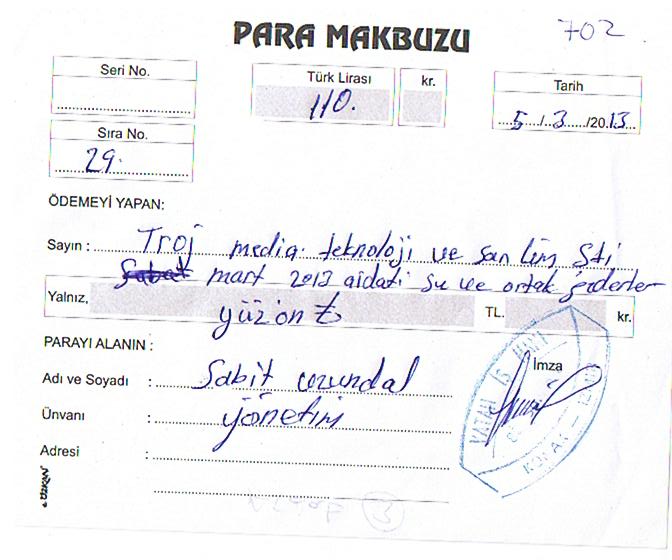 PARA MAKBUZU
702
Seri No.
Türk Lirası
kr.
110.
Tarih
5/3/2013
Sıra No.
29.
ÖDEMEYİ YAPAN:
Sayın : Troj media. teknoloji ve san lim şti
Şubat mart 2013 aidatı su ve ortak giderler
Yalnız, yüz on ₺ TL. kr.
PARAYI ALANIN :
İmza
Adı ve Soyadı : Sabit
Ünvanı : yönetim
Adresi :
KONAK